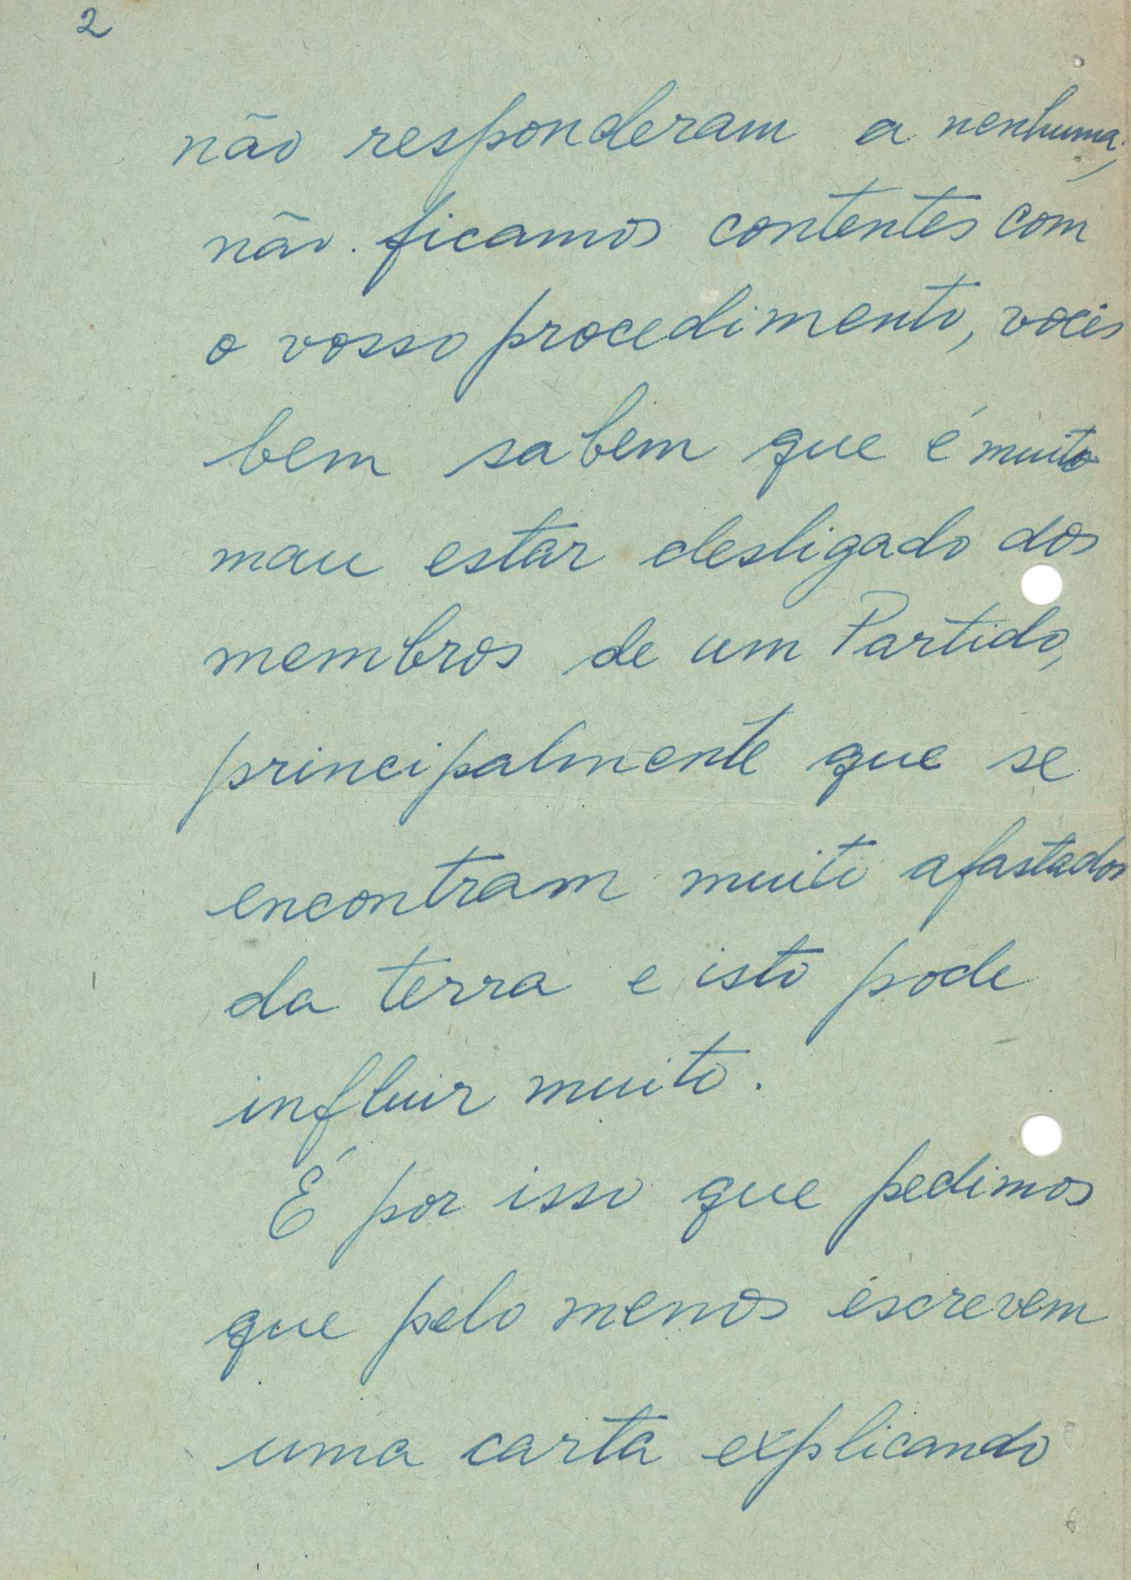 2
não responderam a nenhuma;
não ficamos contentes com
o vosso procedimento, vocês
bem sabem que é muito
mau estar desligado dos
membros de um Partido,
principalmente que se
encontram muito afastados
da terra e isto pode
influir muito.
É por isso que pedimos
que pelo menos escrevem
uma carta explicando